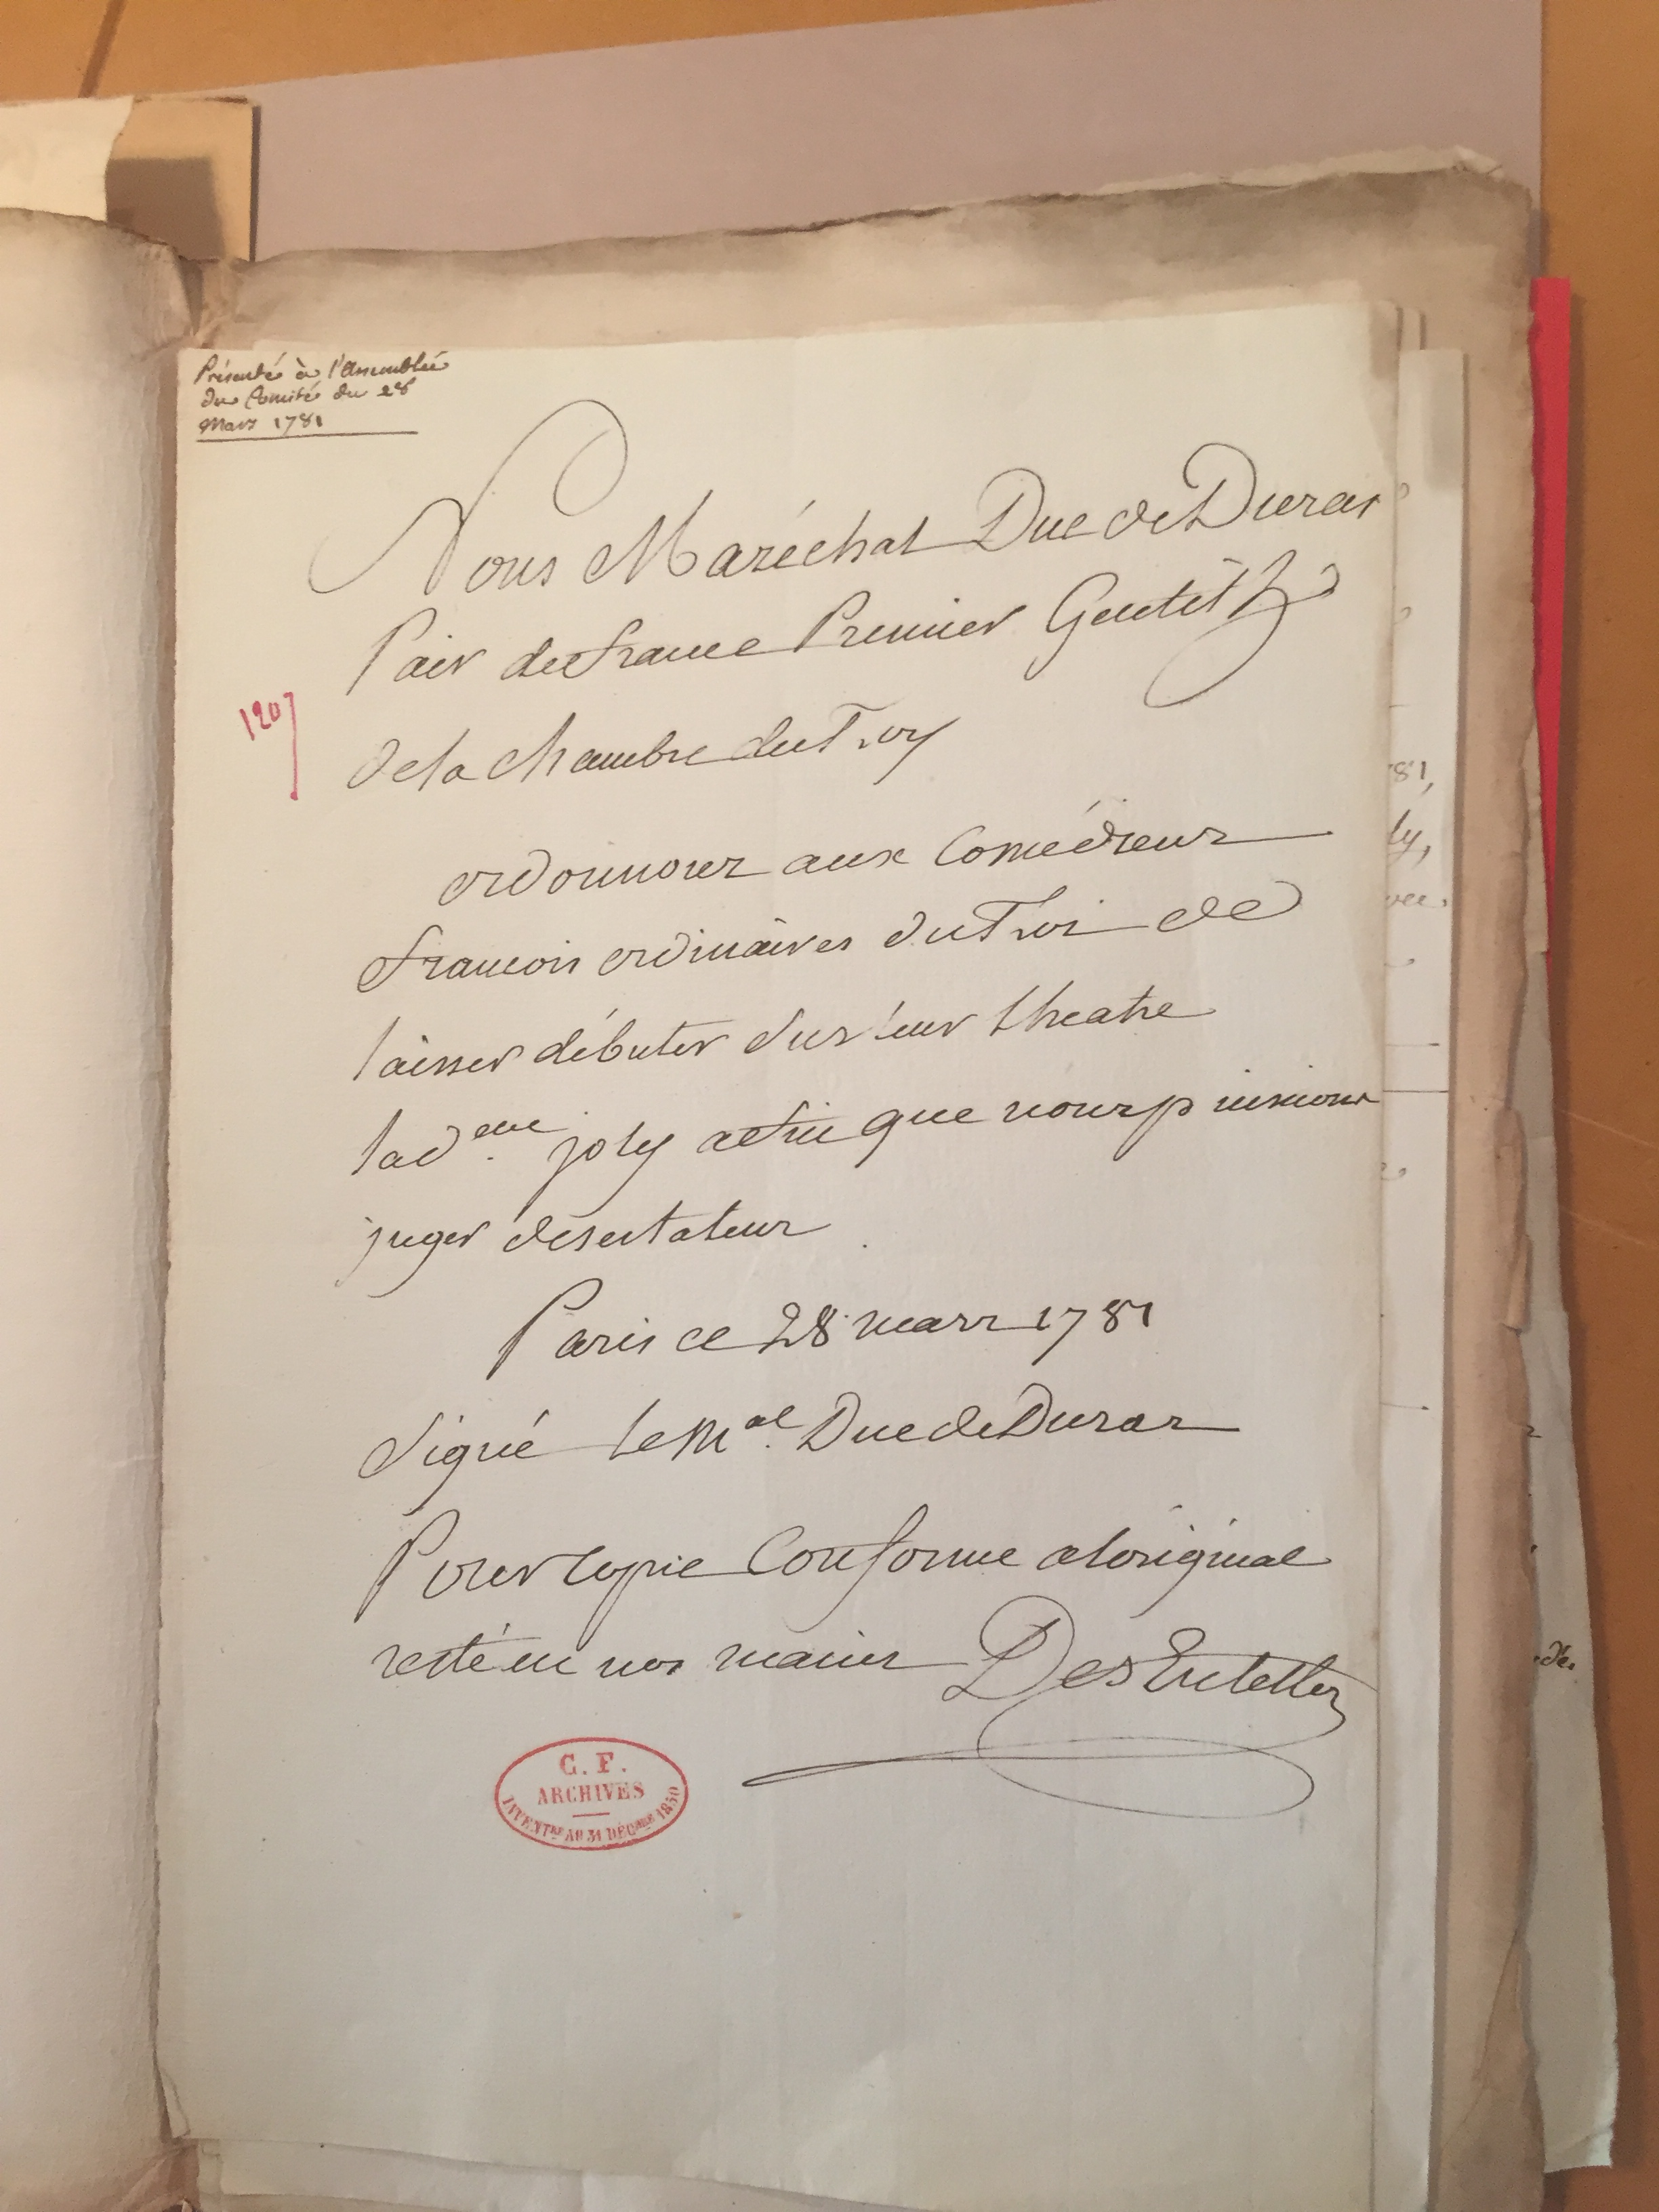 Présenté à l'Assemblée
du Comité du 28
Mars 1781
Nous Maréchal Duc de Duras
Pair de france Premier Gentilh
de la Chambre du Roy
120
ordonnons aux Comédiens
francois ordinaires du Roi de
laisser débuter sur leur theatre
la d.elle joly afin que nous puissions
juger de ses talens
Paris ce 28 mars 1781
Signé le M.al Duc de Duras
Pour Copie Conforme a loriginal
resté en nos mains Des Entelles
C. F.
ARCHIVES
INVENTRE AU 31 DÉCBRE 1850
81,
ly,